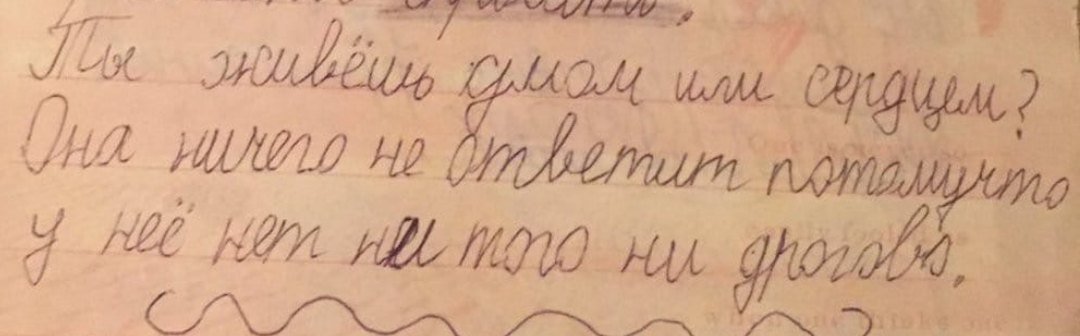 Ты живёшь умом или сердцем?
Она ничего не ответит потомучто
у неё нет ни того ни дрогова.